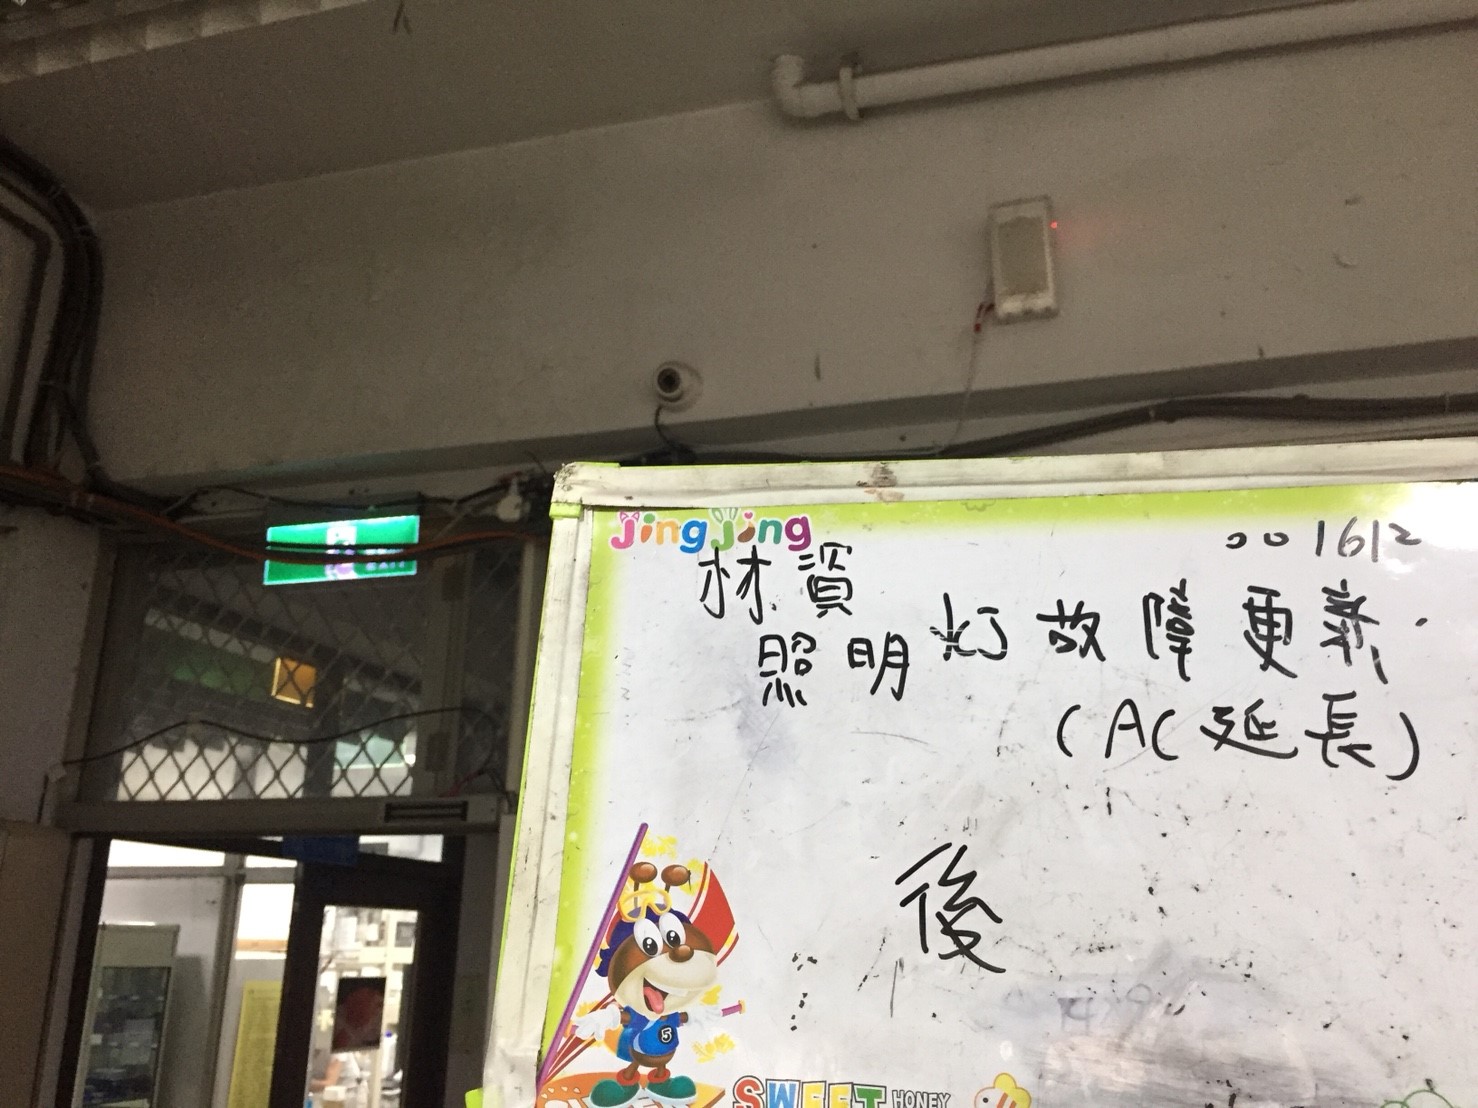 EXIT
jingjing
001612
林資
照明灯故障更新.
(AC延長)
後
5
SWEET HONEY